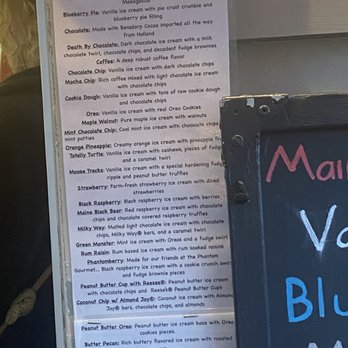 Madagascar
Blueberry Pie: Vanilla ice cream with pie crust crumble and
blueberry pie filling
Chocolate: Made with Bensdorp Cocoa imported all the way
from Holland
Death By Chocolate: Dark chocolate ice cream with a milk
chocolate twirl, chocolate chips, and decadent fudge brownies
Coffee: A deep robust coffee flavor
Chocolate Chip: Vanilla ice cream with dark chocolate chips
Mocha Chip: Rich coffee mixed with light chocolate ice cream
with chocolate chips
Cookie Dough: Vanilla ice cream with tons of raw cookie dough
and chocolate chips
Oreo: Vanilla ice cream with real Oreo Cookies
Maple Walnut: Pure maple ice cream with walnuts
Mint Chocolate Chip: Cool mint ice cream with chocolate chips,
mint patties
Orange Pineapple: Creamy orange ice cream with pineapple
Totally Turtle: Vanilla ice cream with cashews, pieces of fudge
and a caramel twirl
Moose Tracks: Vanilla ice cream with a special hardening fudge
ripple and peanut butter truffles
Strawberry: Farm-fresh strawberry ice cream with diced
strawberries
Black Raspberry: Black raspberry ice cream with berries
Maine Black Bear: Red raspberry ice cream with chocolate
chips and chocolate covered raspberry truffles
Milky Way: Malted light chocolate ice cream with chocolate
chips, Milky Way® bars, and a caramel twirl
Green Monster: Mint ice cream with Oreos and a fudge swirl
Rum Raisin: Rum based ice cream with rum soaked raisins
Phantomberry: Made for our friends at the Phantom
Gourmet... Black raspberry ice cream with a cookie crunch swirl
and fudge brownie pieces
Peanut Butter Cup with Reeses®: Peanut butter ice cream
with chocolate chips and Reese's® Peanut Butter Cups
Coconut Chip w/ Almond Joy®: Coconut ice cream with Almond
Joy® bars, chocolate chips, and almonds
Peanut Butter Oreo: Peanut butter ice cream base with Oreo
cookies pieces.
Butter Pecan: Rich buttery flavored ice cream with roasted
Main
Va
Blu